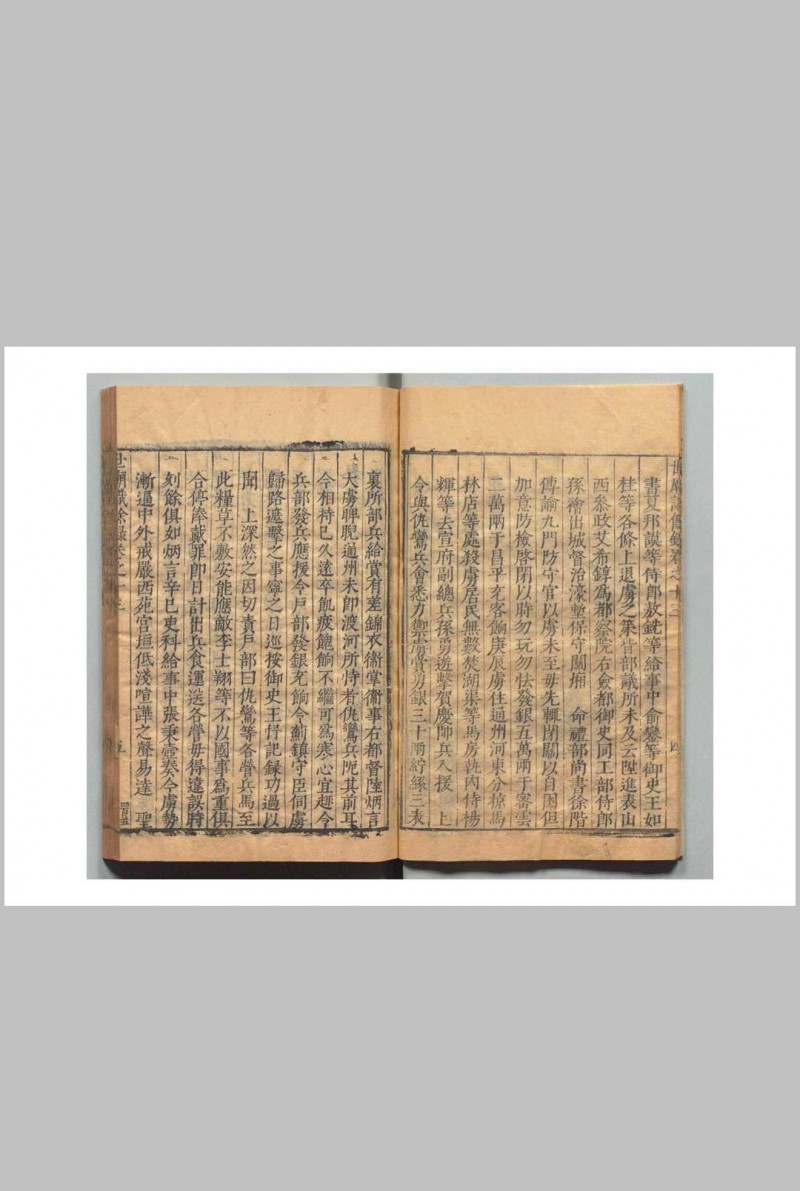 書夏邦謨等侍郎敖銑等給事中俞鑾等御史王如
桂等各條上退虜之策皆部議所未及云陞進表山
西叅政艾希錞為都察院右僉都御史同工部侍郎
孫禬出城督治濠塹保守關廂 命禮部尚書徐階
傳諭九門防守官以虜未至毋先輒閉關以自困但
加意防檢啓閉以時勿玩勿怯發銀五萬兩于密雲
二萬兩于昌平充客餉庚辰虜住通州河東分掠馬
林店等處殺虜居民無數焚湖渠等馬房執內侍楊
輝等去宣府副總兵孫勇遊擊賀慶帥兵入援 上
令與仇鸞兵會悉力禦虜賞勇銀三十兩紵絲三表
裏所部兵給賞有差錦衣衞掌衞事右都督陸炳言
大虜睥睨通州未即渡河所恃者仇鸞兵阨其前耳
今相持已久遠卒飢疲飽餉不繼可為寒心宜趣令
兵部發兵應援令戶部發銀充餉令薊鎮守臣伺虜
歸路遮擊之事寧之日巡按御史王忬記録功過以
聞 上深然之因切責戶部曰仇鸞等各營兵馬至
此糧草不敷安能應敵李士翔等不以國事為重俱
令停俸戴罪即日計出兵食運送各營毋得違誤時
刻餘俱如炳言辛巳吏科給事中張秉壺奏今虜勢
漸逼中外戒嚴西苑宫垣低淺喧譁之聲易達 聖
世廟識餘録卷之十三
五